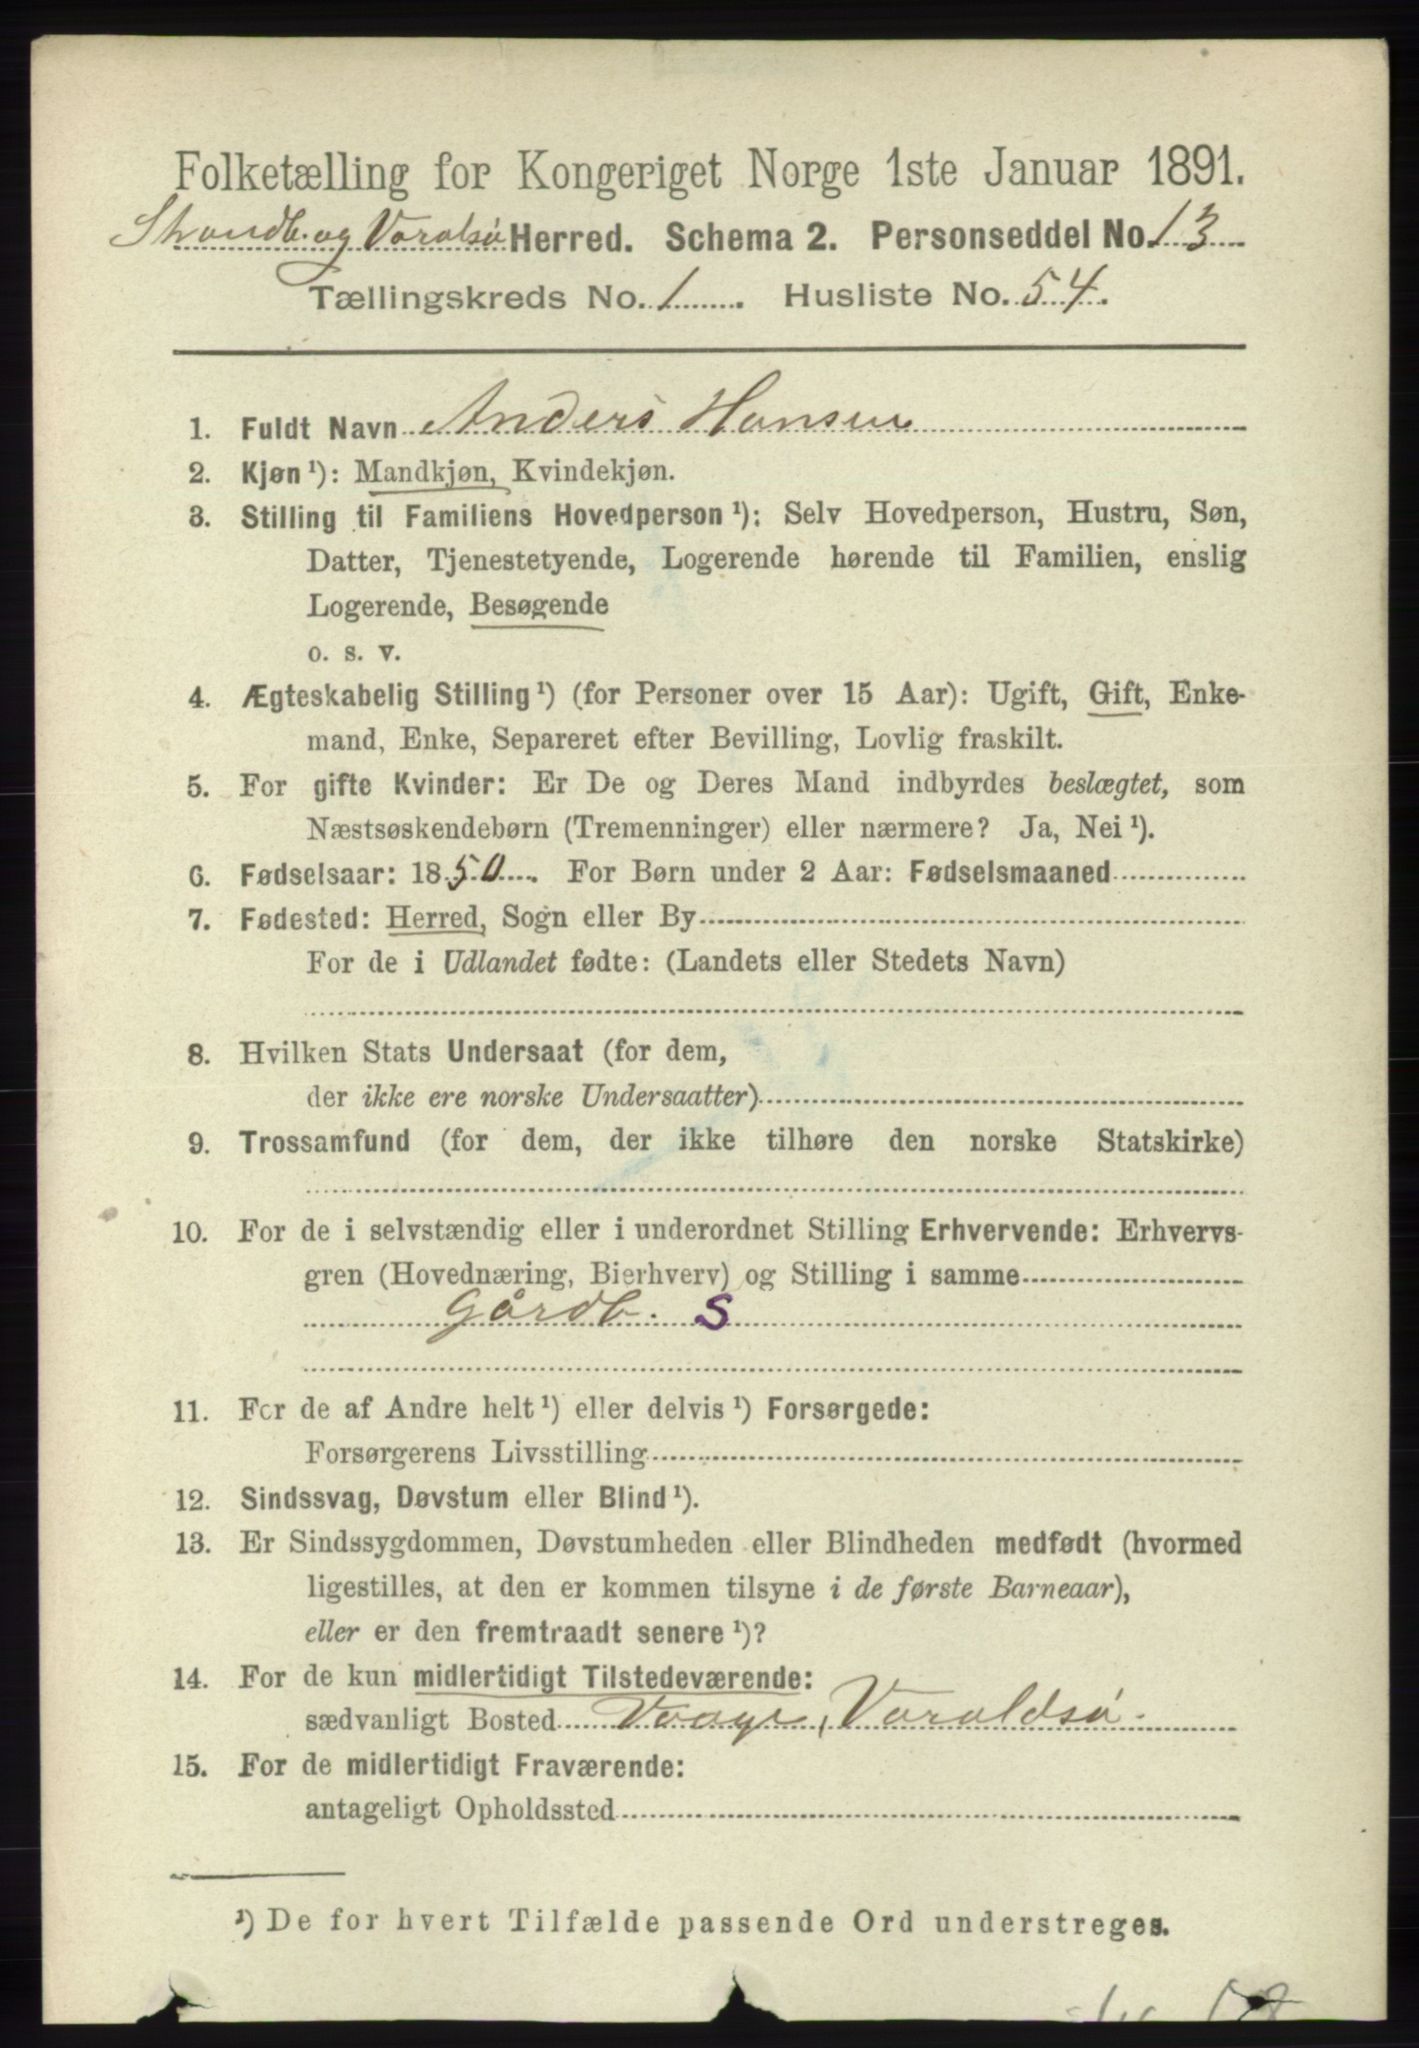 Folketælling for Kongeriget Norge 1ste Januar 1891.
Strandb. og Varalsø Herred. Schema 2. Personseddel No. 13
Tællingskreds No. 1. Husliste No. 54.
1. Fuldt Navn Anders Hansen
2. Kjøn¹): Mandkjøn, Kvindekjøn.
3. Stilling til Familiens Hovedperson¹): Selv Hovedperson, Hustru, Søn,
Datter, Tjenestetyende, Logerende hørende til Familien, enslig
Logerende, Besøgende
o. s. v.
4. Ægteskabelig Stilling¹) (for Personer over 15 Aar): Ugift, Gift, Enke-
mand, Enke, Separeret efter Bevilling, Lovlig fraskilt.
5. For gifte Kvinder: Er De og Deres Mand indbyrdes beslægtet, som
Næstsøskendebørn (Tremenninger) eller nærmere? Ja, Nei¹).
6. Fødselsaar: 1850. For Børn under 2 Aar: Fødselsmaaned
7. Fødested: Herred, Sogn eller By
For de i Udlandet fødte: (Landets eller Stedets Navn)
8. Hvilken Stats Undersaat (for dem,
der ikke ere norske Undersaatter)
9. Trossamfund (for dem, der ikke tilhøre den norske Statskirke)
10. For de i selvstændig eller i underordnet Stilling Erhvervende: Erhvervs-
gren (Hovednæring, Bierhverv) og Stilling i samme
Gårdb. S
11. For de af Andre helt¹) eller delvis¹) Forsørgede:
Forsørgerens Livsstilling
12. Sindssvag, Døvstum eller Blind¹).
13. Er Sindssygdommen, Døvstumheden eller Blindheden medfødt (hvormed
ligestilles, at den er kommen tilsyne i de første Barneaar),
eller er den fremtraadt senere¹)?
14. For de kun midlertidigt Tilstedeværende:
sædvanligt Bosted Vaage, Varaldsø.
15. For de midlertidigt Fraværende:
antageligt Opholdssted
¹) De for hvert Tilfælde passende Ord understreges.